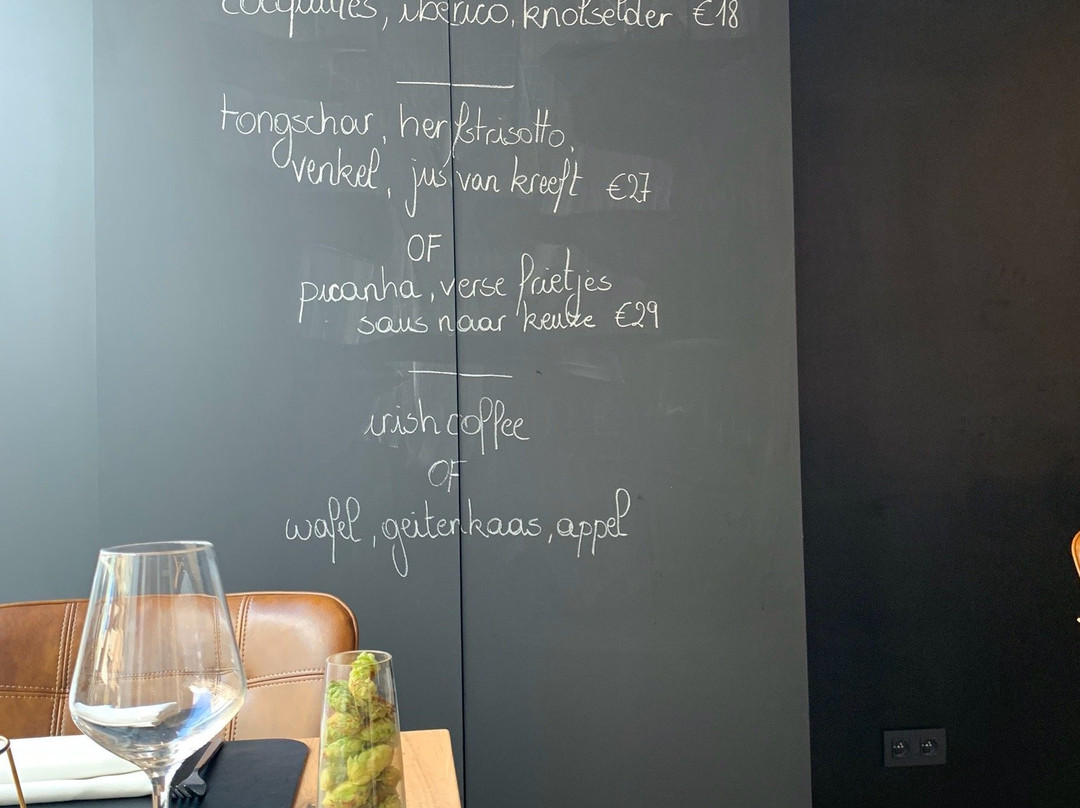 coquilles, iberico, knolselder €18
tongschar, herfstrisotto,
venkel, jus van kreeft €27
OF
picanha, verse frietjes
saus naar keuze €29
irish coffee
OF
wafel, geitenkaas, appel